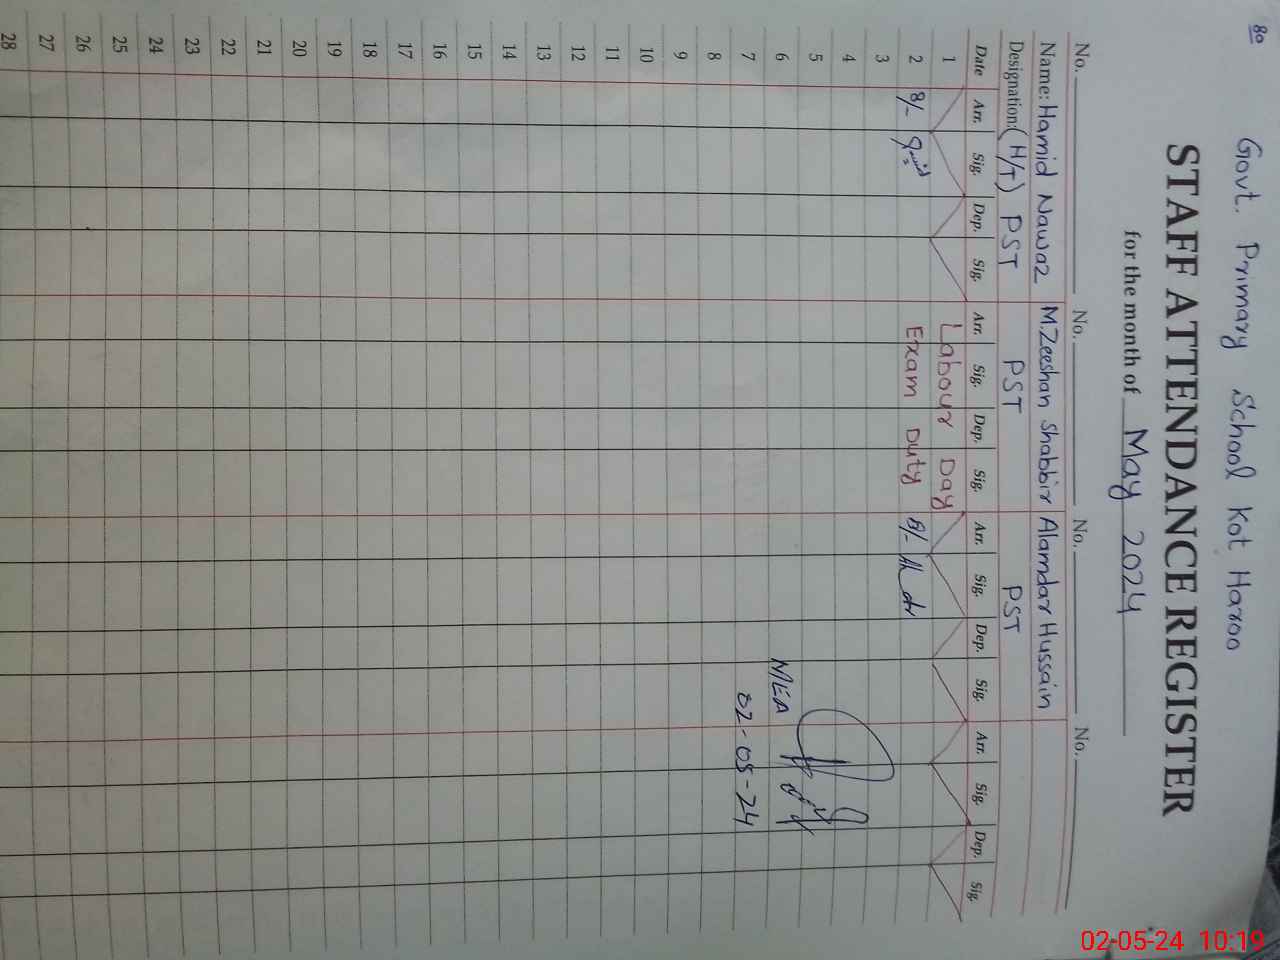 80
Govt. Primary School Kot Haroo
STAFF ATTENDANCE REGISTER
for the month of May 2024
No. No. No. No.
Name: Hamid Nawaz M.Zeeshan Shabbir Alamdar Hussain
Designation: (H/T) PST PST PST
Date Arr. Sig. Dep. Sig. Arr. Sig. Dep. Sig. Arr. Sig. Dep. Sig. Arr. Sig. Dep. Sig.
1 Labour Day
2 8/- Exam Duty 8/-
3
4
5
6 MEA
7 02-05-24
8
9
10
11
12
13
14
15
16
17
18
19
20
21
22
23
24
25
26
27
28
02-05-24 10:19